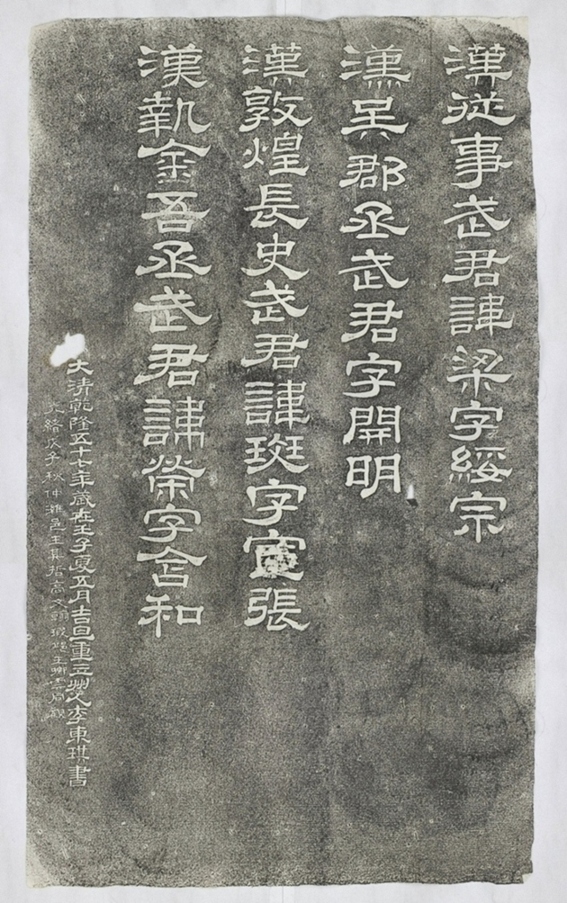 漢從事武君諱梁字綏宗
漢吳郡丞武君字開明
漢敦煌長史武君諱班字宣張
漢執金吾丞武君諱榮字含和
大清乾隆五十七年歲在壬子夏五月吉旦重立州人李東琪書
光緒戊子秋仲濰邑王哲高文翰城王同觀